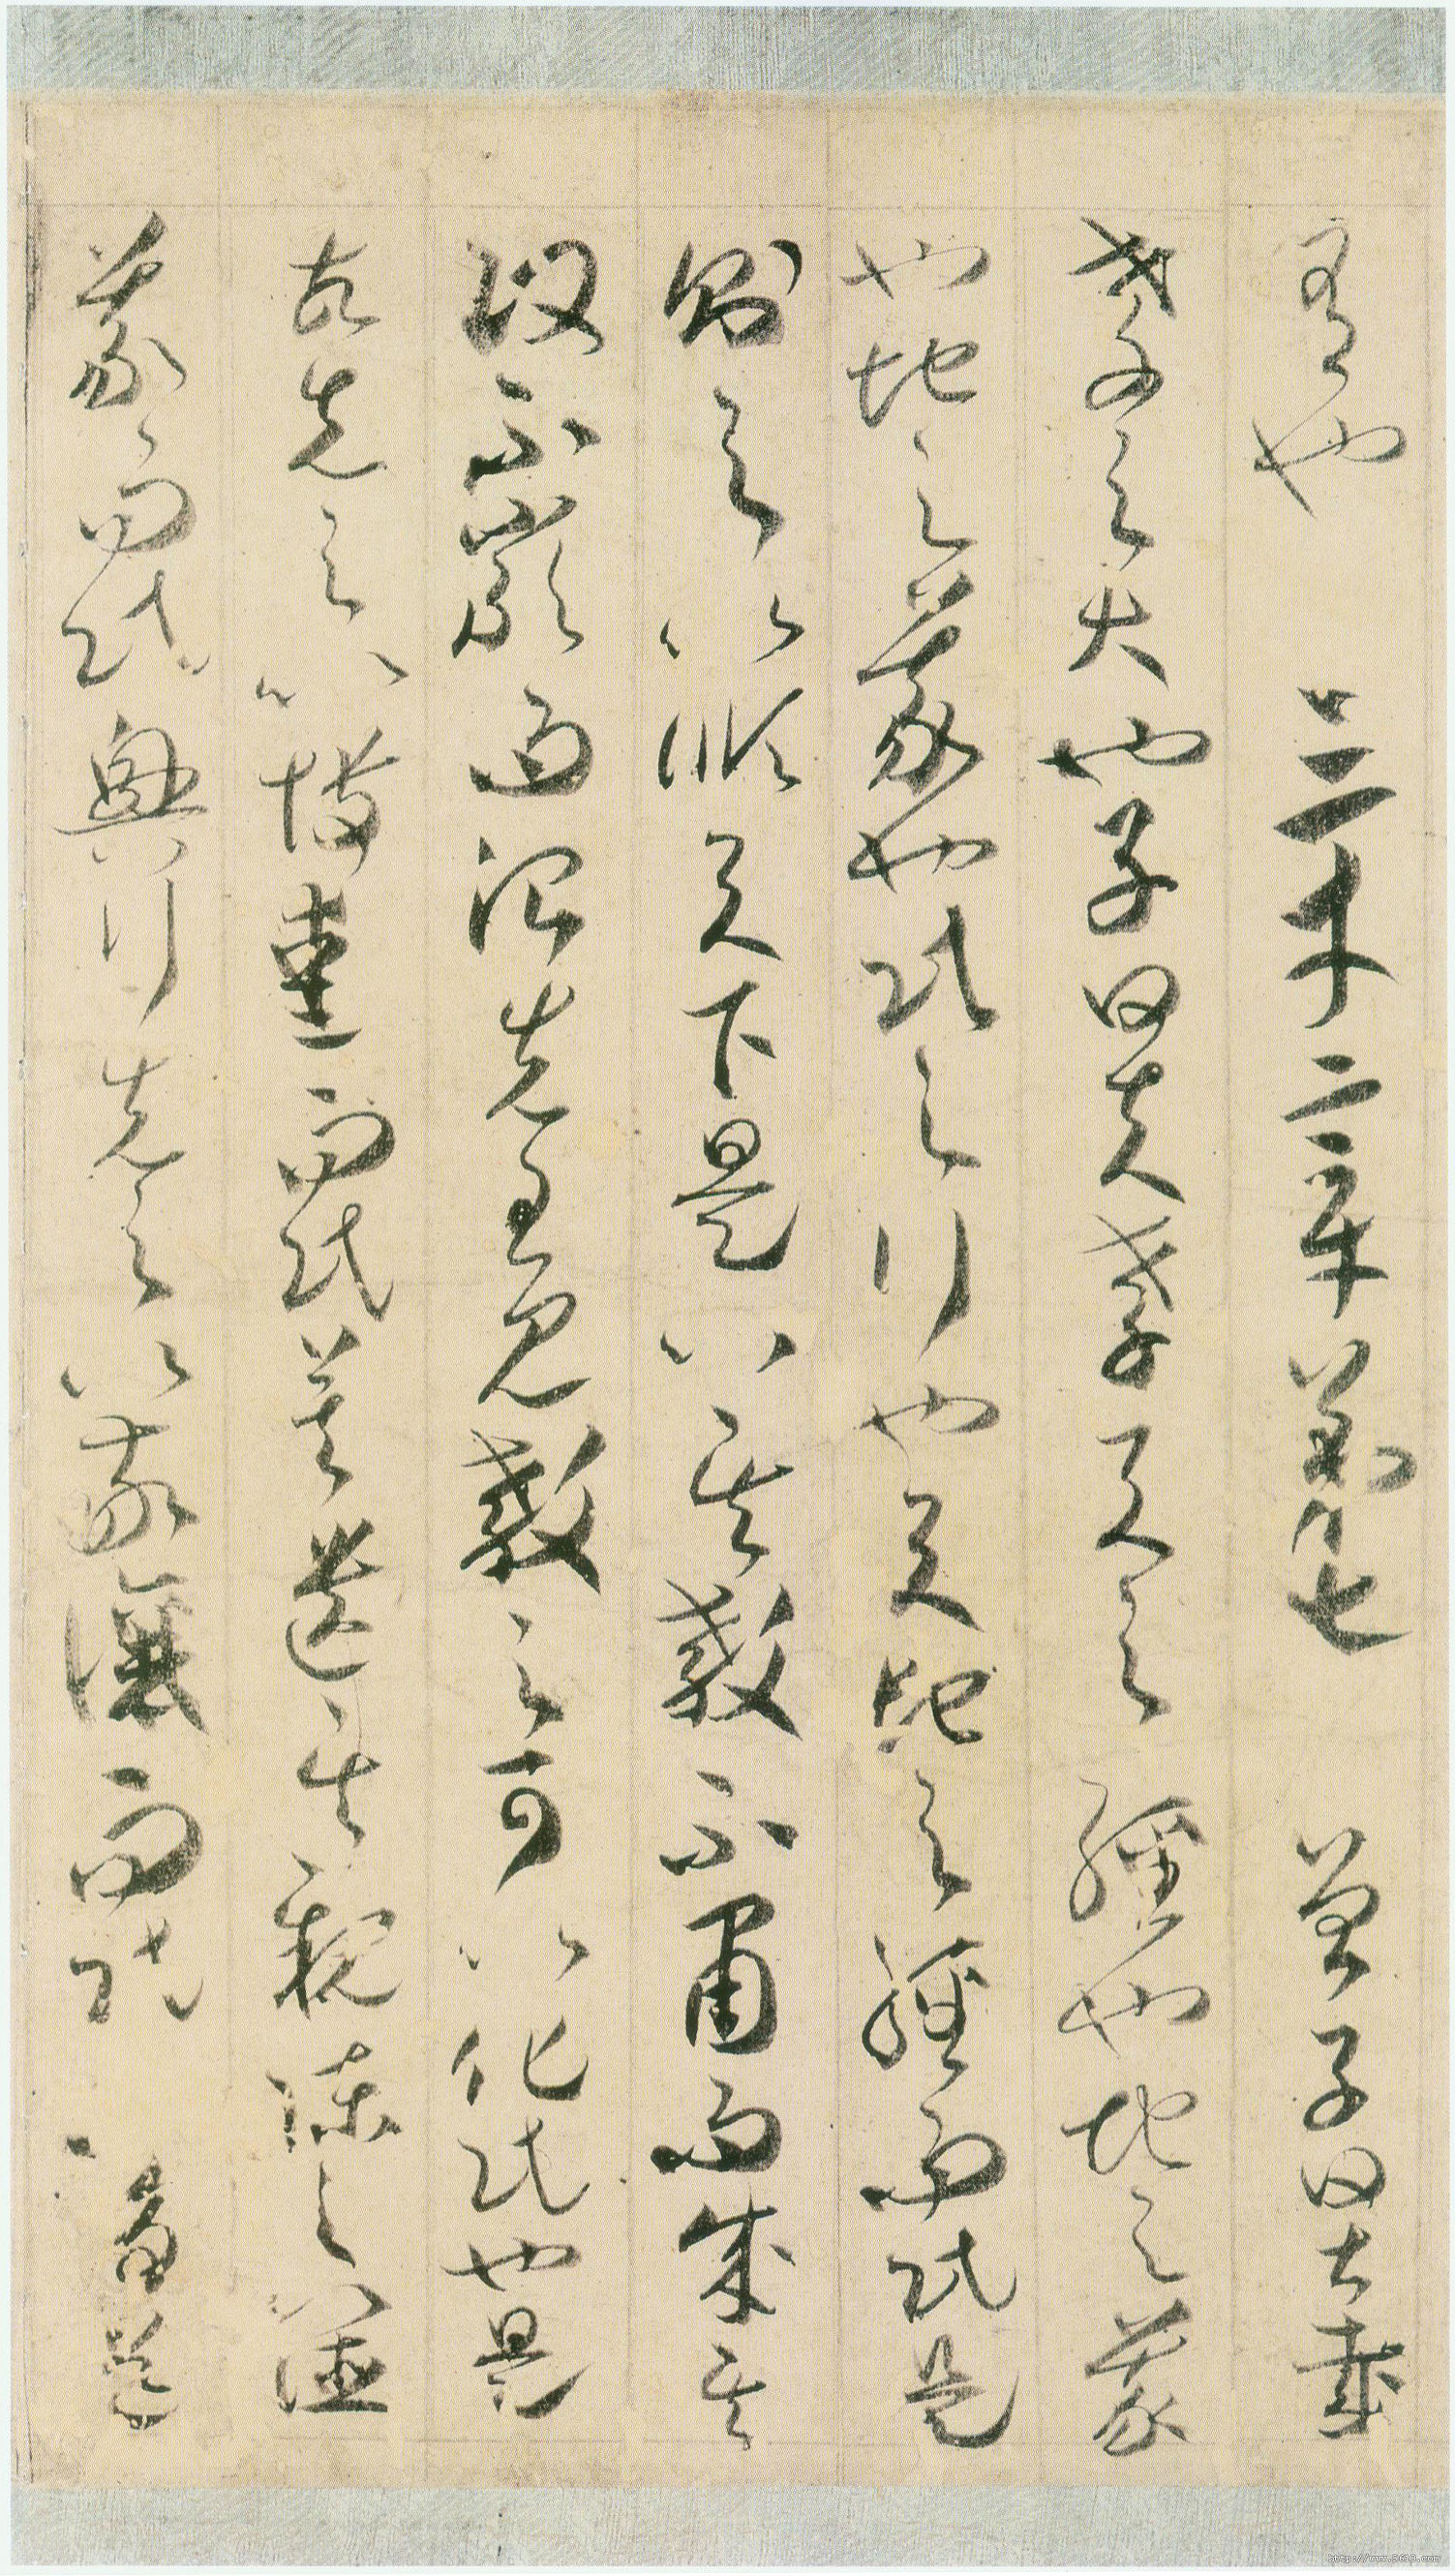 有也　三才章第七　曾子曰甚哉
孝之大也子曰夫孝天之經也地之義
也地之義也民之行也天地之經而民是
則之以順天下是以其教不肅而成其
政不嚴而治先王見教之可以化民也是
故先之以博愛而民莫遺其親陳之以德
義而民興行先之以敬讓而民爭導
http://www.9610.com